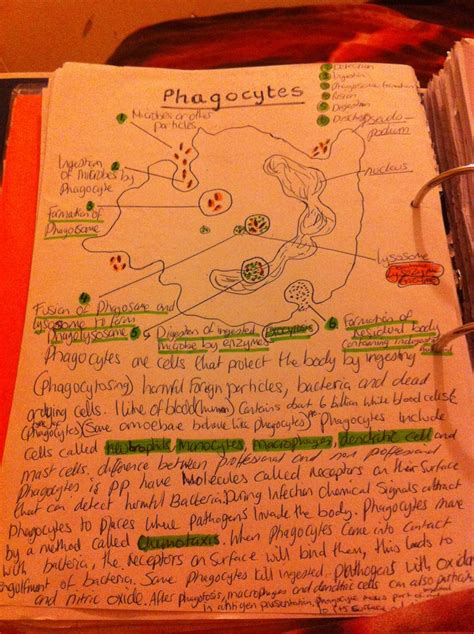 Phagocytes
1 Detection
2 Ingestion
3 Phagosome formation
4 Fusion
5 Digestion
6
1 Microbes or other
particles
Pseudo-
podium
2
Ingestion
of microbes by
Phagocyte
nucleus
3
Formation of
Phagosome
Lysosome
4
Fusion of Phagosome and
lysosome to form
Phagolysosome
5 Digestion of ingested
microbe by enzymes
6 Formation of
residual body
containing indigestible
material
Phagocytes are cells that protect the body by ingesting
(phagocytosing) harmful foreign particles, bacteria and dead
or dying cells. 1 litre of blood (human) contains about 6 billion white blood cells
(phagocytes) (Some amoebae behave like phagocytes) Phagocytes include
cells called Neutrophils, Monocytes, macrophages, dendritic cell and
mast cells. diference between professional and non professional
Phagocytes is PP have Molecules called receptors on their Surface
that can detect harmful Bacteria. During Infection chemical Signals attract
Phagocytes to places where pathogens Invade the body. Phagocytes move
by a method called Chemotaxis. When Phagocytes come into Contact
with bacteria, the Receptors on Surface will bind them, this leads to
engulfment of bacteria. Some Phagocytes kill ingested Pathogens with oxidants
and nitric oxide. After phagocytosis, macrophages and dendritic cells can also participate
in antigen presentation, phagocyte moves part of
to its surface